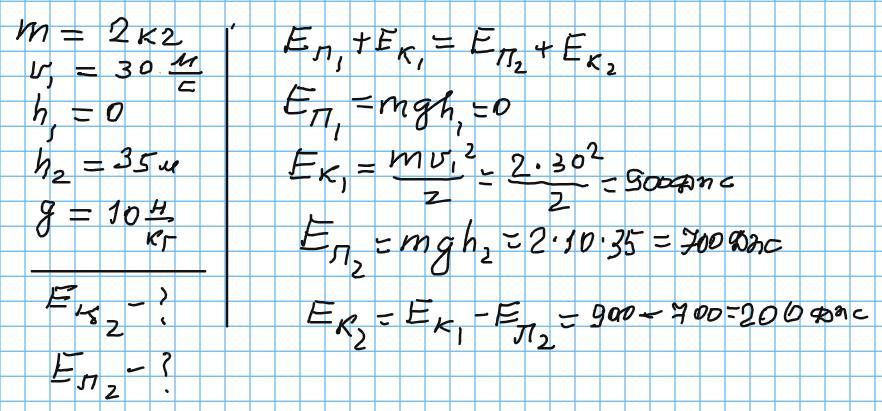 m = 2 кг
v₁ = 30 м/с
h₁ = 0
h₂ = 35 м
g = 10 н/кг
Eк₂ - ?
Eп₂ - ?
Eп₁ + Eк₁ = Eп₂ + Eк₂
Eп₁ = mgh₁ = 0
Eк₁ = mv₁²/2 = 2·30²/2 = 900 дж
Eп₂ = mgh₂ = 2·10·35 = 700 Дж
Eк₂ = Eк₁ - Eп₂ = 900 - 700 = 200 дж